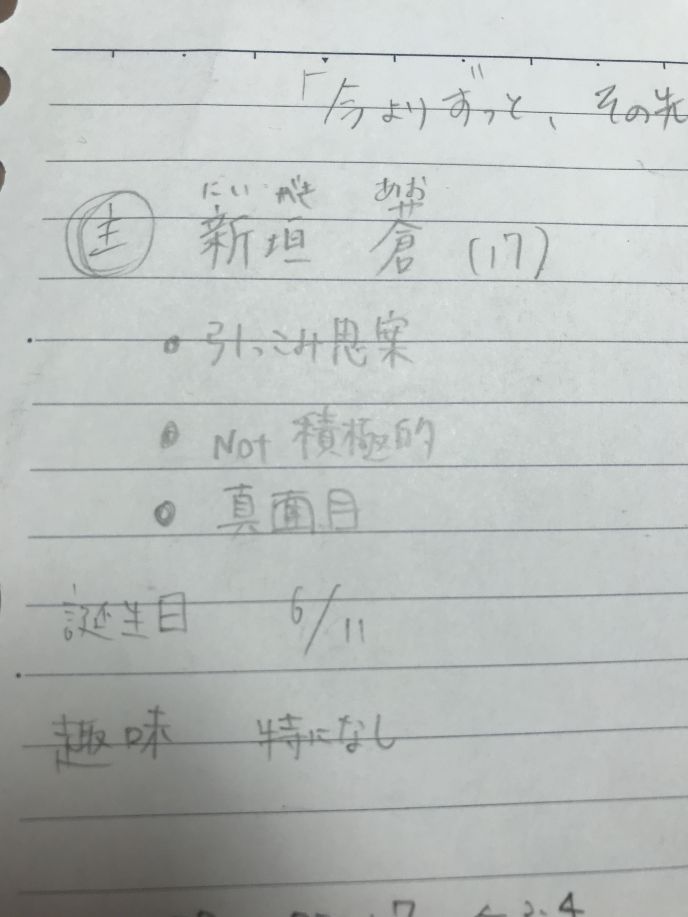 「今よりずっと、その先
にいがき あお
主 新垣 蒼 (17)
• 引っこみ思案
• Not 積極的
• 真面目
誕生日 6/11
趣味 特になし